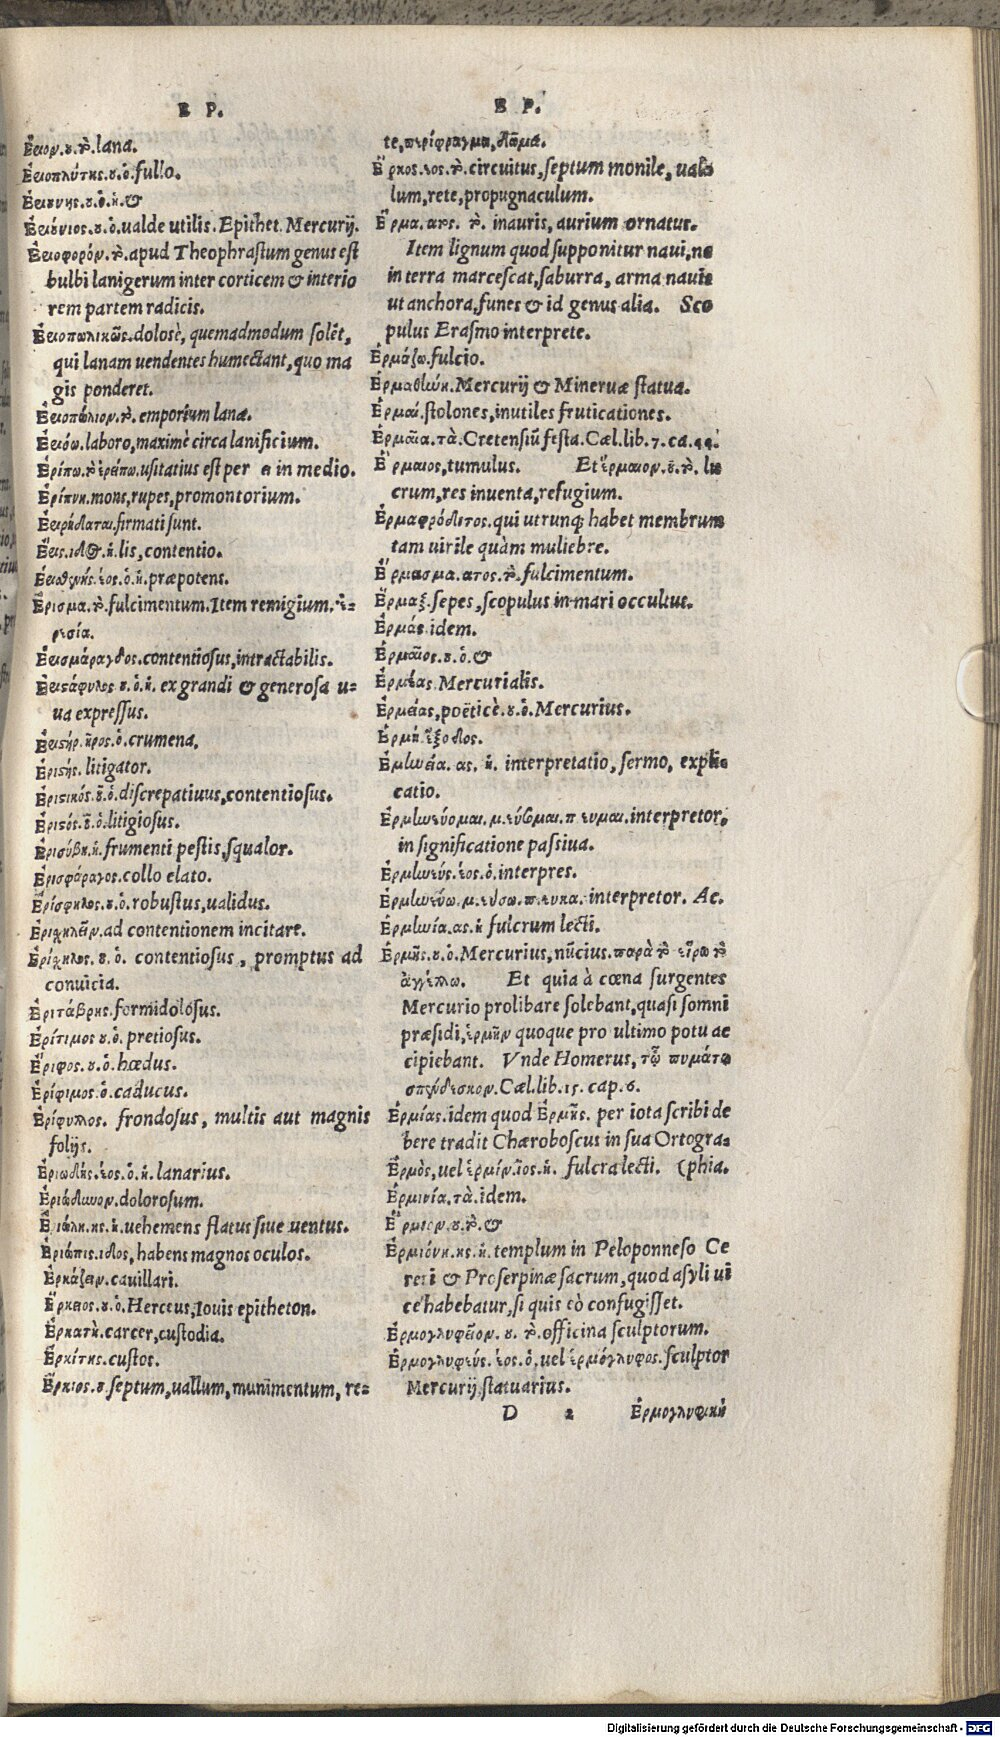 E P.
Ἔριον.ου.τὸ.lana.
Ἐριοπλύτης.ου.ὁ.fullo.
Ἐριούνης.ου.ὁ.ἡ.&
Ἐριούνιος.ου.ὁ.ualde utilis.Epithet.Mercurij.
Ἐριοφορόν.τὸ.apud Theophrastum genus est
bulbi lanigerum inter corticem & interio
rem partem radicis.
Ἐριοπωλικῶς.dolosè, quemadmodum solẽt,
qui lanam uendentes humectant,quo ma
gis ponderet.
Ἐριοπώλιον.τὸ.emporium lanæ.
Ἐριόω.laboro,maximè circa lanificium.
Ἐρίπω.τὸ ἐρείπω.usitatius est per ει in medio.
Ἐρίπνη.mons,rupes,promontorium.
Ἐρηρίδαται.firmati sunt.
Ἔρις.ιδος.ἡ.lis,contentio.
Ἐρισθενής.έος.ὁ.ἡ.præpotens.
Ἔρισμα.τὸ.fulcimentum.Item remigium.ἐι-
ρεσία.
Ἐρισμάραγδος.contentiosus,intractabilis.
Ἐριστάφυλος.ου.ὁ.ἡ. ex grandi & generosa u-
ua expressus.
Ἐριστήρ.ῆρος.ὁ.crumena,
Ἐριστής.litigator.
Ἐριστικός.οῦ.ὁ.discrepatiuus,contentiosus.
Ἐριστός.οῦ.ὁ.litigiosus.
Ἐρισύβη.ἡ.frumenti pestis,squalor.
Ἐρισφάραγος.collo elato.
Ἐρίσφηλος.ου.ὁ.robustus,ualidus.
Ἐρισχηλεῖν.ad contentionem incitare.
Ἐρίσχηλος.ου.ὁ. contentiosus, promptus ad
conuicia.
Ἐριτάβρης.formidolosus.
Ἐρίτιμος ου.ὁ. pretiosus.
Ἔριφος.ου.ὁ.hœdus.
Ἐρίφιμος.ὁ.caducus.
Ἐρίφυλλος. frondosus, multis aut magnis
folijs.
Ἐριώδης.έος.ὁ.ἡ.lanarius.
Ἐριώδυνον.dolorosum.
Ἐριώλη.ης.ἡ.uehemens flatus siue uentus.
Ἐριῶπις.ιδος,habens magnos oculos.
Ἐρκάζειν.cauillari.
Ἕρκειος.ου.ὁ.Herceus,Iouis epitheton.
Ἑρκατή.carcer,custodia.
Ἑρκίτης.custos.
Ἕρκιος.ου septum,uallum,munimentum, re-
E P.
te,περίφραγμα,δῶμα.
Ἕρκος.εος.τὸ.circuitus,septum monile, ual-
lum,rete,propugnaculum.
Ἕρμα.ατος. τὸ. inauris, aurium ornatus.
Item lignum quod supponitur naui,ne
in terra marcescat,saburra, arma nauis
ut anchora,funes & id genus alia. Sco
pulus Erasmo interprete.
Ἑρμάζω.fulcio.
Ἑρμαθήνη.Mercurij & Mineruæ statua.
Ἑρμαῖ.stolones,inutiles fruticationes.
Ἑρμαῖα.τὰ.Cretensiũ festa.Cæl.lib.7.ca.44.
Ἕρμαιος,tumulus. Et ἕρμαιον.ου.τὸ. lu
crum,res inuenta,refugium.
Ἑρμαφρόδιτος.qui utrunq; habet membrum
tam uirile quàm muliebre.
Ἕρμασμα.ατος.τὸ.fulcimentum.
Ἕρμαξ.sepes,scopulus in mari occultus.
Ἑρμάς.idem.
Ἑρμαῖος.ου.ὁ.&
Ἑρμέας.Mercurialis.
Ἑρμείας,poëticè.ου.ὁ.Mercurius.
Ἑρμῆ.ἔξοδος.
Ἑρμηνεία.ας.ἡ. interpretatio, sermo, expli-
catio.
Ἑρμηνεύομαι.μ.εύσομαι.π ευμαι.interpretor,
in significatione passiua.
Ἑρμηνεύς.έος.ὁ.interpres.
Ἑρμηνεύω.μ.εύσω.π.ευκα.interpretor. Ac.
Ἑρμηνία.ας.ἡ fulcrum lecti.
Ἑρμῆς.οῦ.ὁ.Mercurius,nũcius.παρὰ τὸ εἴρω τὸ
ἀγγέλλω. Et quia à cœna surgentes
Mercurio prolibare solebant,quasi somni
præsidi,ἑρμῆν quoque pro ultimo potu ac
cipiebant. Vnde Homerus, τῷ πυμάτῳ
σπένδεσκον.Cæl.lib.15.cap.6.
Ἑρμίας.idem quod Ἑρμῆς. per iota scribi de
bere tradit Chæroboscus in sua Ortogra-
Ἑρμὸς,uel ἑρμίν.ῖος.ἡ. fulcra lecti. (phia.
Ἑρμινία.τὰ.idem.
Ἕρμιον.ου.τὸ.&
Ἑρμιόνη.ης.ἡ.templum in Peloponneso Ce
reri & Proserpinæ sacrum,quod asyli ui
cẽ habebatur,si quis eò confugisset.
Ἑρμογλυφεῖον. ου. τὸ.officina sculptorum.
Ἑρμογλυφεύς.έος.ὁ,uel ἑρμόγλυφος.sculptor
Mercurij statuarius.
D 2 Ἑρμογλυφικὴ
Digitalisierung gefördert durch die Deutsche Forschungsgemeinschaft - DFG